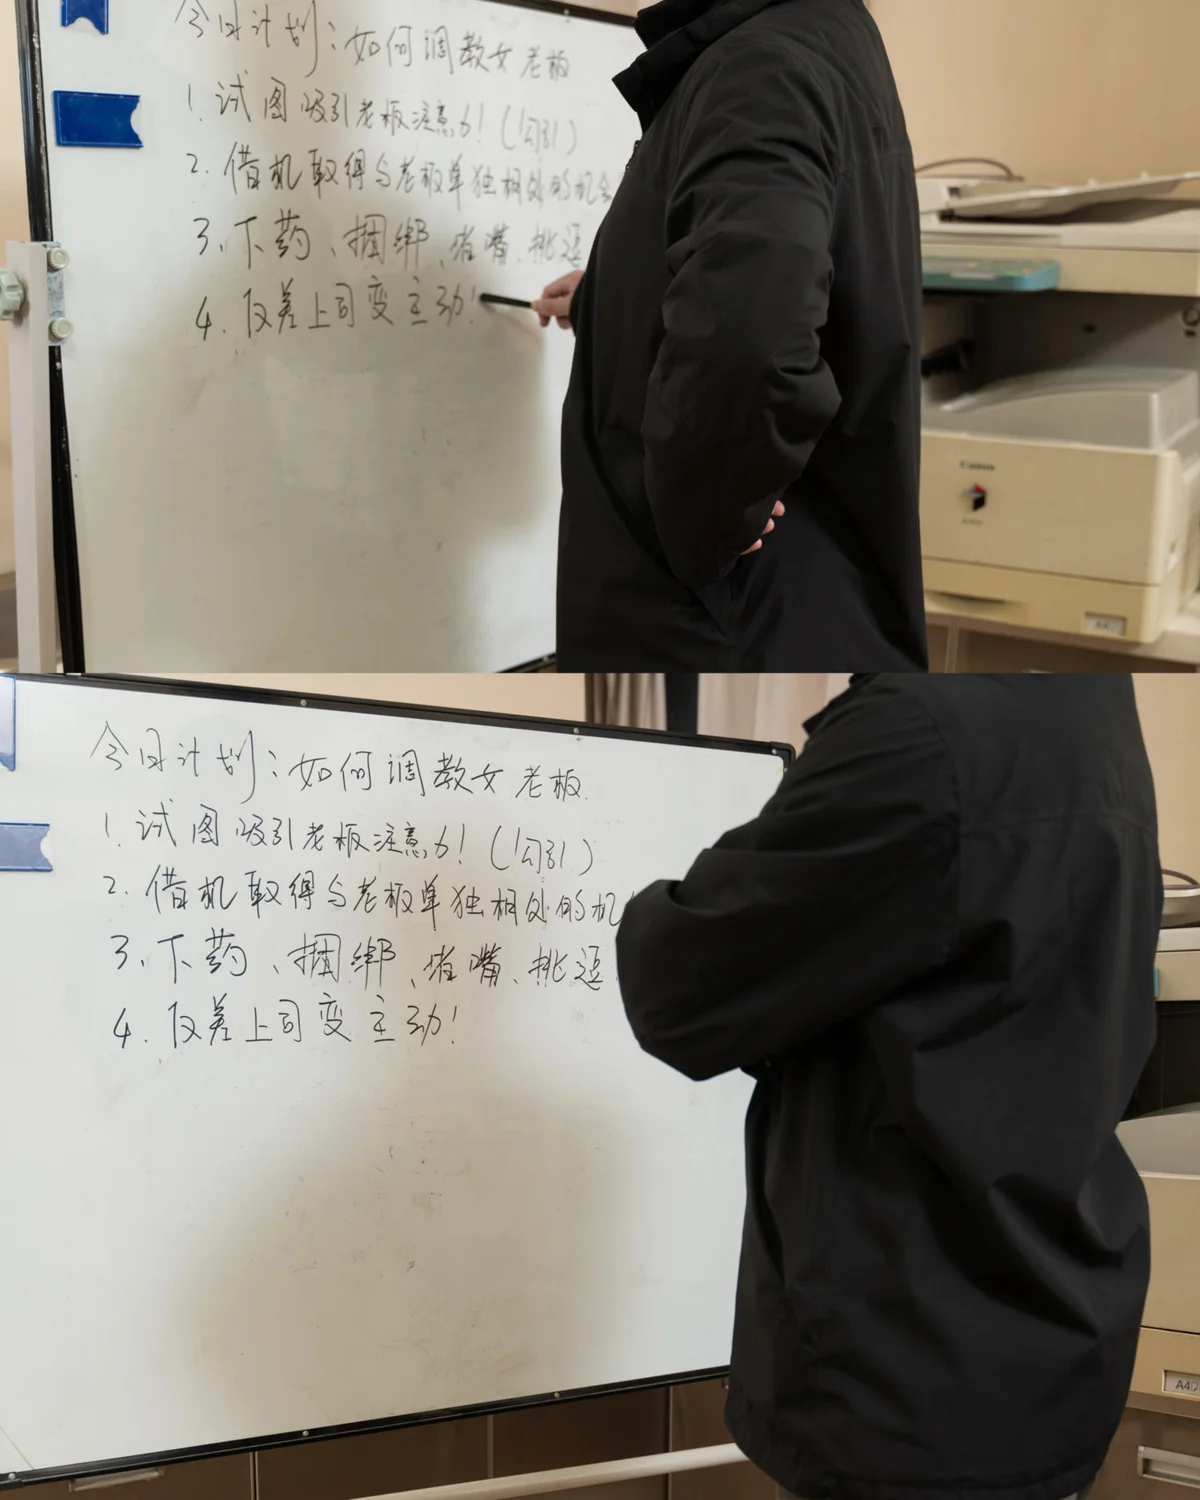 今日计划：如何调教女老板
1. 试图吸引老板注意力！（勾引）
2. 借机取得与老板单独相处的机会
3. 下药、捆绑、堵嘴、挑逗
4. 反差上司变主动！
Canon
A4
今日计划：如何调教女老板
1. 试图吸引老板注意力！（勾引）
2. 借机取得与老板单独相处的机
3. 下药、捆绑、堵嘴、挑逗
4. 反差上司变主动！
A4